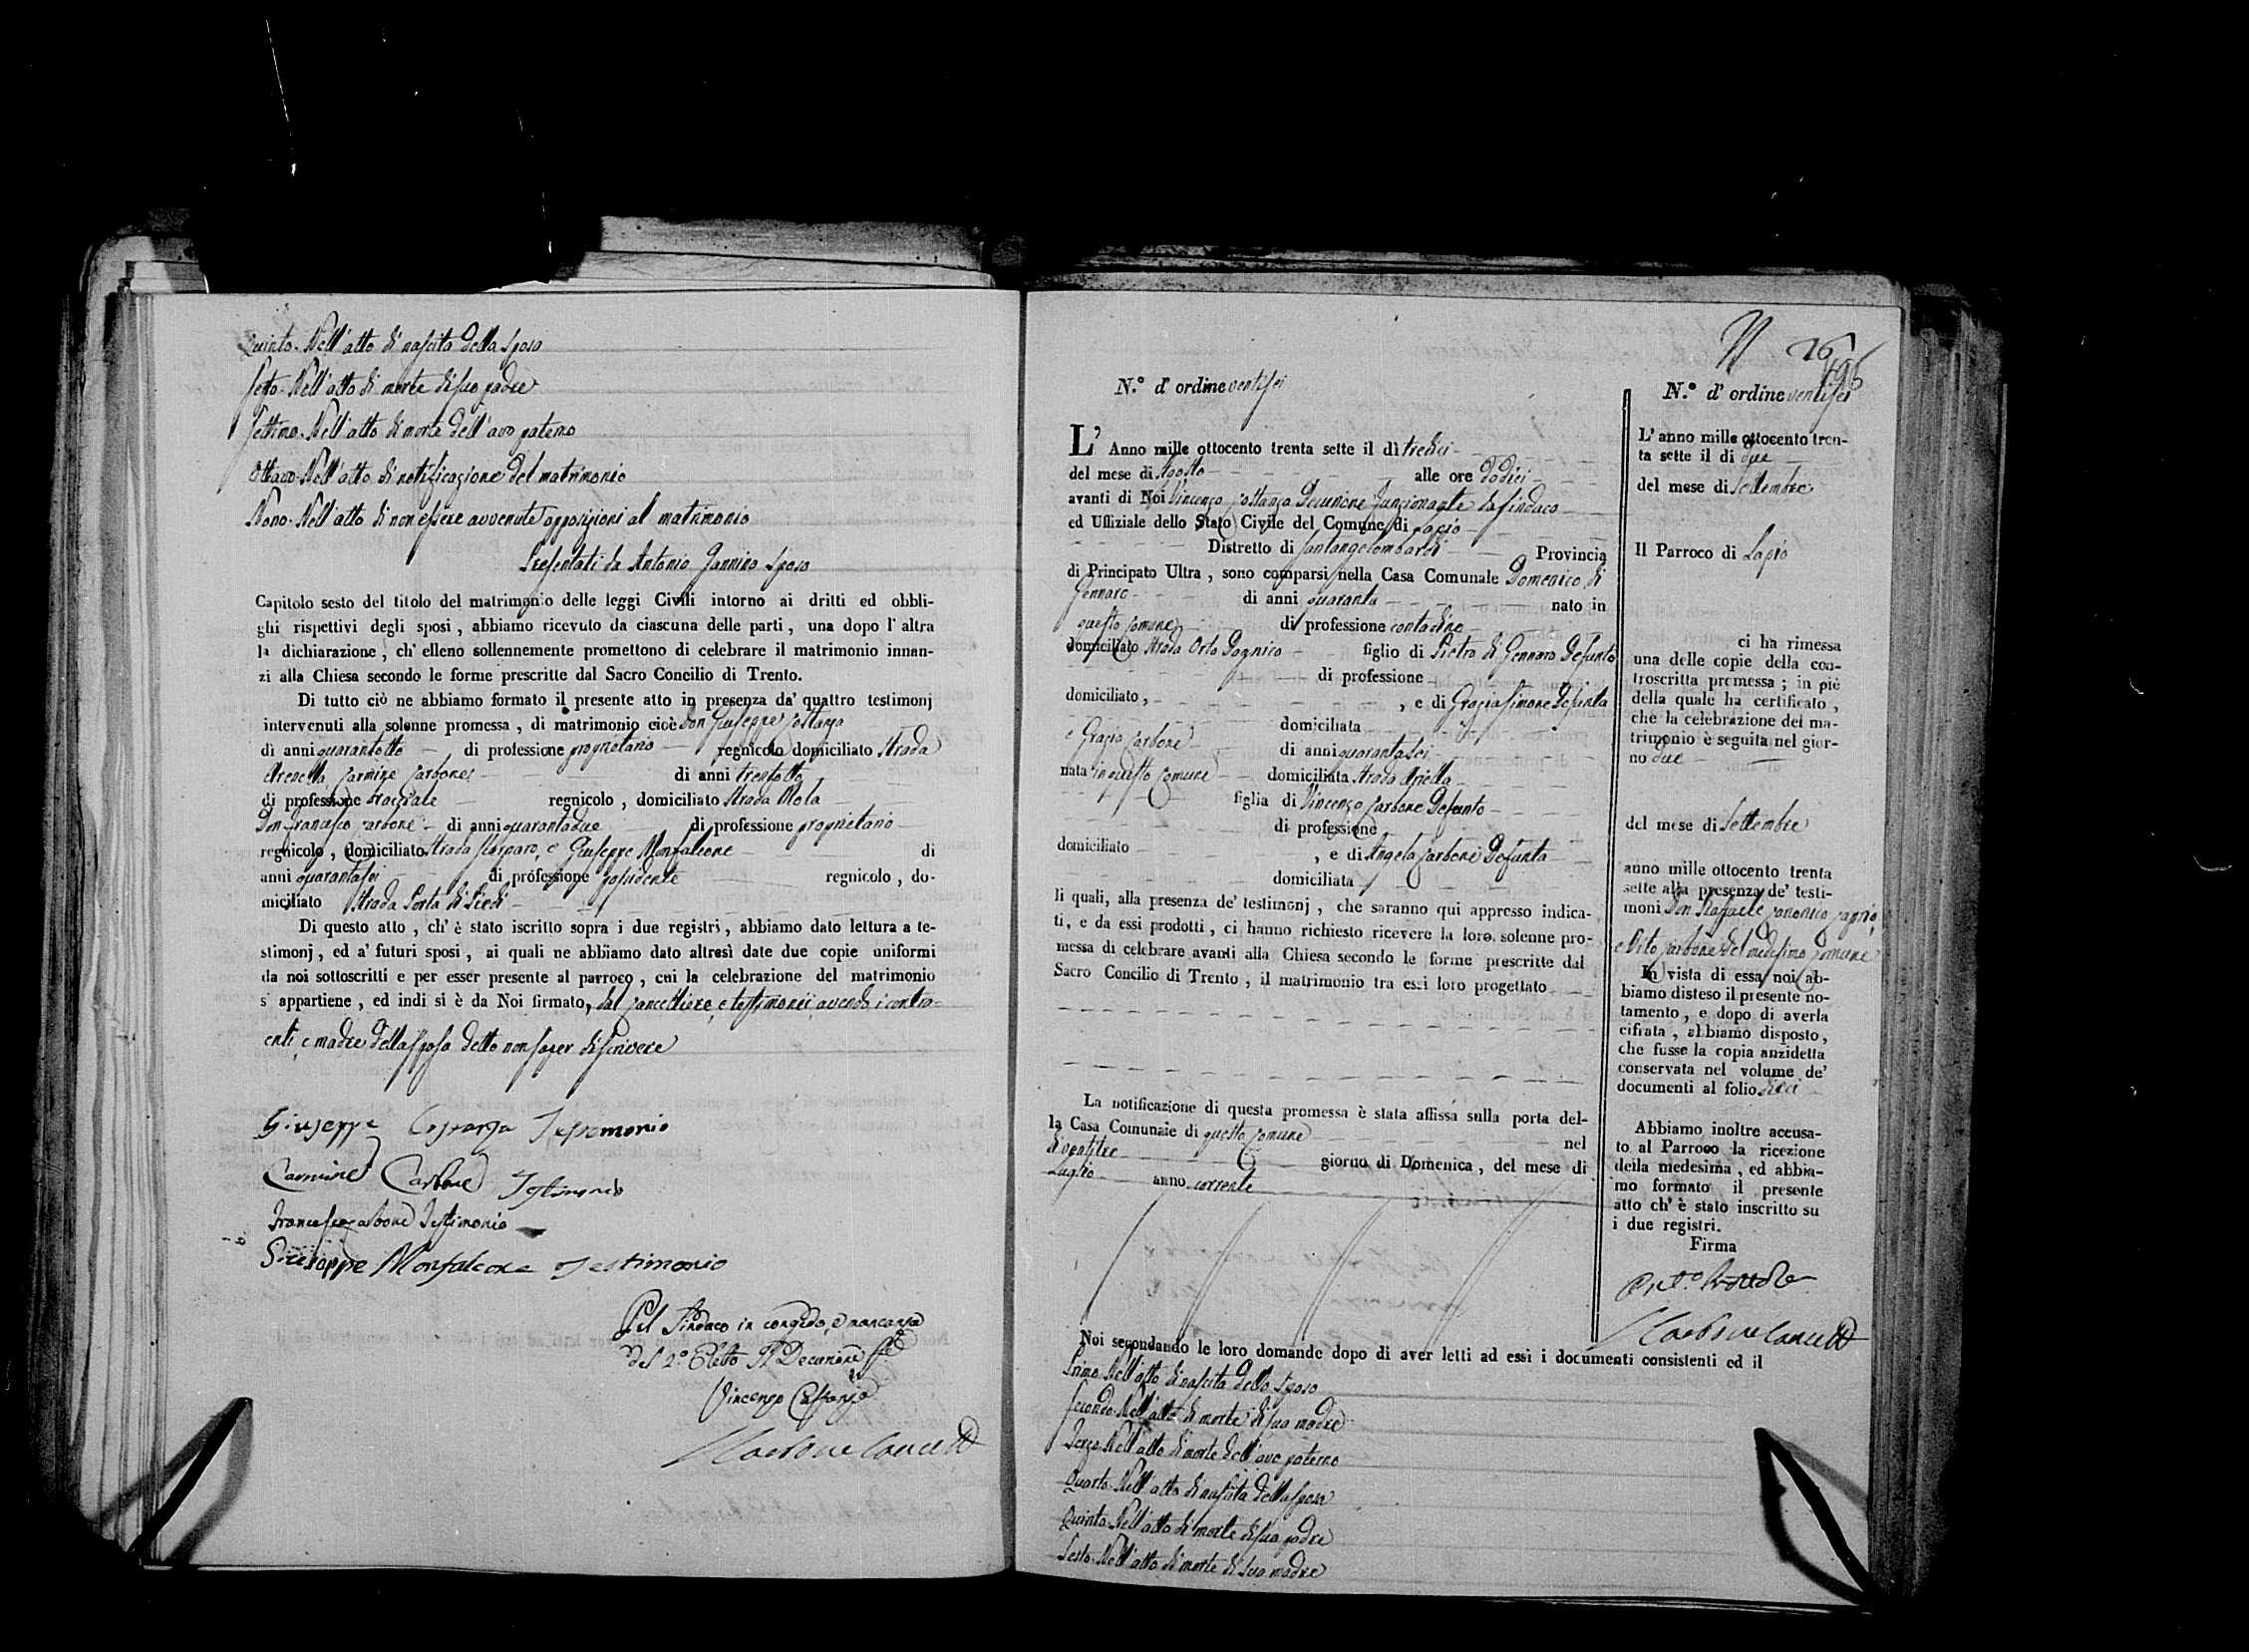 Quinto. Nell'atto di nascita della Sposa
Sesto. Nell'atto di morte di suo padre
Settimo. Nell'atto di morte dell'avo paterno
Ottavo. Nell'atto di notificazione del matrimonio
Nono. Nell'atto di non essere avvenute opposizioni al matrimonio
Presentati da Antonio Jannino Sposo
Capitolo sesto del titolo del matrimonio delle leggi Civili intorno ai dritti ed obbli-
ghi rispettivi degli sposi, abbiamo ricevuto da ciascuna delle parti, una dopo l'altra
la dichiarazione, ch'elleno sollennemente promettono di celebrare il matrimonio innan-
zi alla Chiesa secondo le forme prescritte dal Sacro Concilio di Trento.
Di tutto ciò ne abbiamo formato il presente atto in presenza da' quattro testimonj
intervenuti alla solenne promessa, di matrimonio cioè Don Giuseppe Costanza
di anni quarantotto di professione proprietario regnicolo domiciliato Strada
Arenella Carmine Carbone di anni trentotto
di professione regnicolo, domiciliato Strada Mola
Don Francesco Carbone di anni quarantadue di professione proprietario
regnicolo, domiciliato Strada e Giuseppe Monfalcone di
anni quarantasei di professione possidente regnicolo, do-
miciliato Strada Porta di Piedi
Di questo atto, ch'è stato iscritto sopra i due registri, abbiamo dato lettura a te-
stimonj, ed a' futuri sposi, ai quali ne abbiamo dato altresì date due copie uniformi
da noi sottoscritti e per esser presente al parroco, cui la celebrazione del matrimonio
s'appartiene, ed indi si è da Noi firmato, dal Cancelliere, e testimonii, avendo i contra-
enti, e madre della sposa detto non saper di scrivere
Giuseppe Costanza Testimonio
Carmine Carbone Testimonio
Francesco Carbone Testimonio
Giuseppe Monfalcone Testimonio
Pel Sindaco in congedo, e mancanza
del 2.° Eletto Il Decurione
Vincenzo Costanza
Carbone Canc
N 26
N.° d'ordine ventisei
L'Anno mille ottocento trenta sette il dì tredici
del mese di Agosto alle ore dodici
avanti di Noi Vincenzo Costanza Decurione funzionante da Sindaco
ed Uffiziale dello Stato Civile del Comune di Lapio
Distretto di Santangelolombardi Provincia
di Principato Ultra, sono comparsi nella Casa Comunale Domenico di
Gennaro di anni quaranta nato in
questo Comune di professione contadino
domiciliato Strada Orto figlio di Pietro di Gennaro Defunto
di professione
domiciliato, , e di Grazia Simone Defunta
domiciliata
e Grazia Carbone di anni quarantasei
nata in questo Comune domiciliata Strada Ariella
figlia di Vincenzo Carbone Defunto
di professione
domiciliato , e di Angela Carbone Defunta
domiciliata
li quali, alla presenza de' testimonj, che saranno qui appresso indica-
ti, e da essi prodotti, ci hanno richiesto ricevere la loro solenne pro-
messa di celebrare avanti alla Chiesa secondo le forme prescritte dal
Sacro Concilio di Trento, il matrimonio tra essi loro progettato
La notificazione di questa promessa è stata affissa sulla porta del-
la Casa Comunale di questo Comune nel
di ventitre giorno di Domenica, del mese di
Luglio anno corrente
Noi secondando le loro domande dopo di aver letti ad essi i documenti consistenti ed il
Primo. Nell'atto di nascita dello Sposo
Secondo. Nell'atto di morte di sua madre
Terzo. Nell'atto di morte dell'avo paterno
Quarto. Nell'atto di nascita della sposa
Quinto. Nell'atto di morte di suo padre
Sesto. Nell'atto di morte di sua madre
N.° d'ordine ventisei
L'anno mille ottocento tren-
ta sette il di due
del mese di Settembre
Il Parroco di Lapio
ci ha rimessa
una delle copie della con-
troscritta promessa; in piè
della quale ha certificato,
che la celebrazione del ma-
trimonio è seguita nel gior-
no due
del mese di Settembre
anno mille ottocento trenta
sette alla presenza de' testi-
moni Don Raffaele Canonico
e Vito Carbone del medesimo Comune
In vista di essa noi ab-
biamo disteso il presente no-
tamento, e dopo di averla
cifrata, abbiamo disposto,
che fusse la copia anzidetta
conservata nel volume de'
documenti al folio dieci
Abbiamo inoltre accusa-
to al Parroco la ricezione
della medesima, ed abbia-
mo formato il presente
atto ch'è stato inscritto su
i due registri.
Firma
Carbone Canc